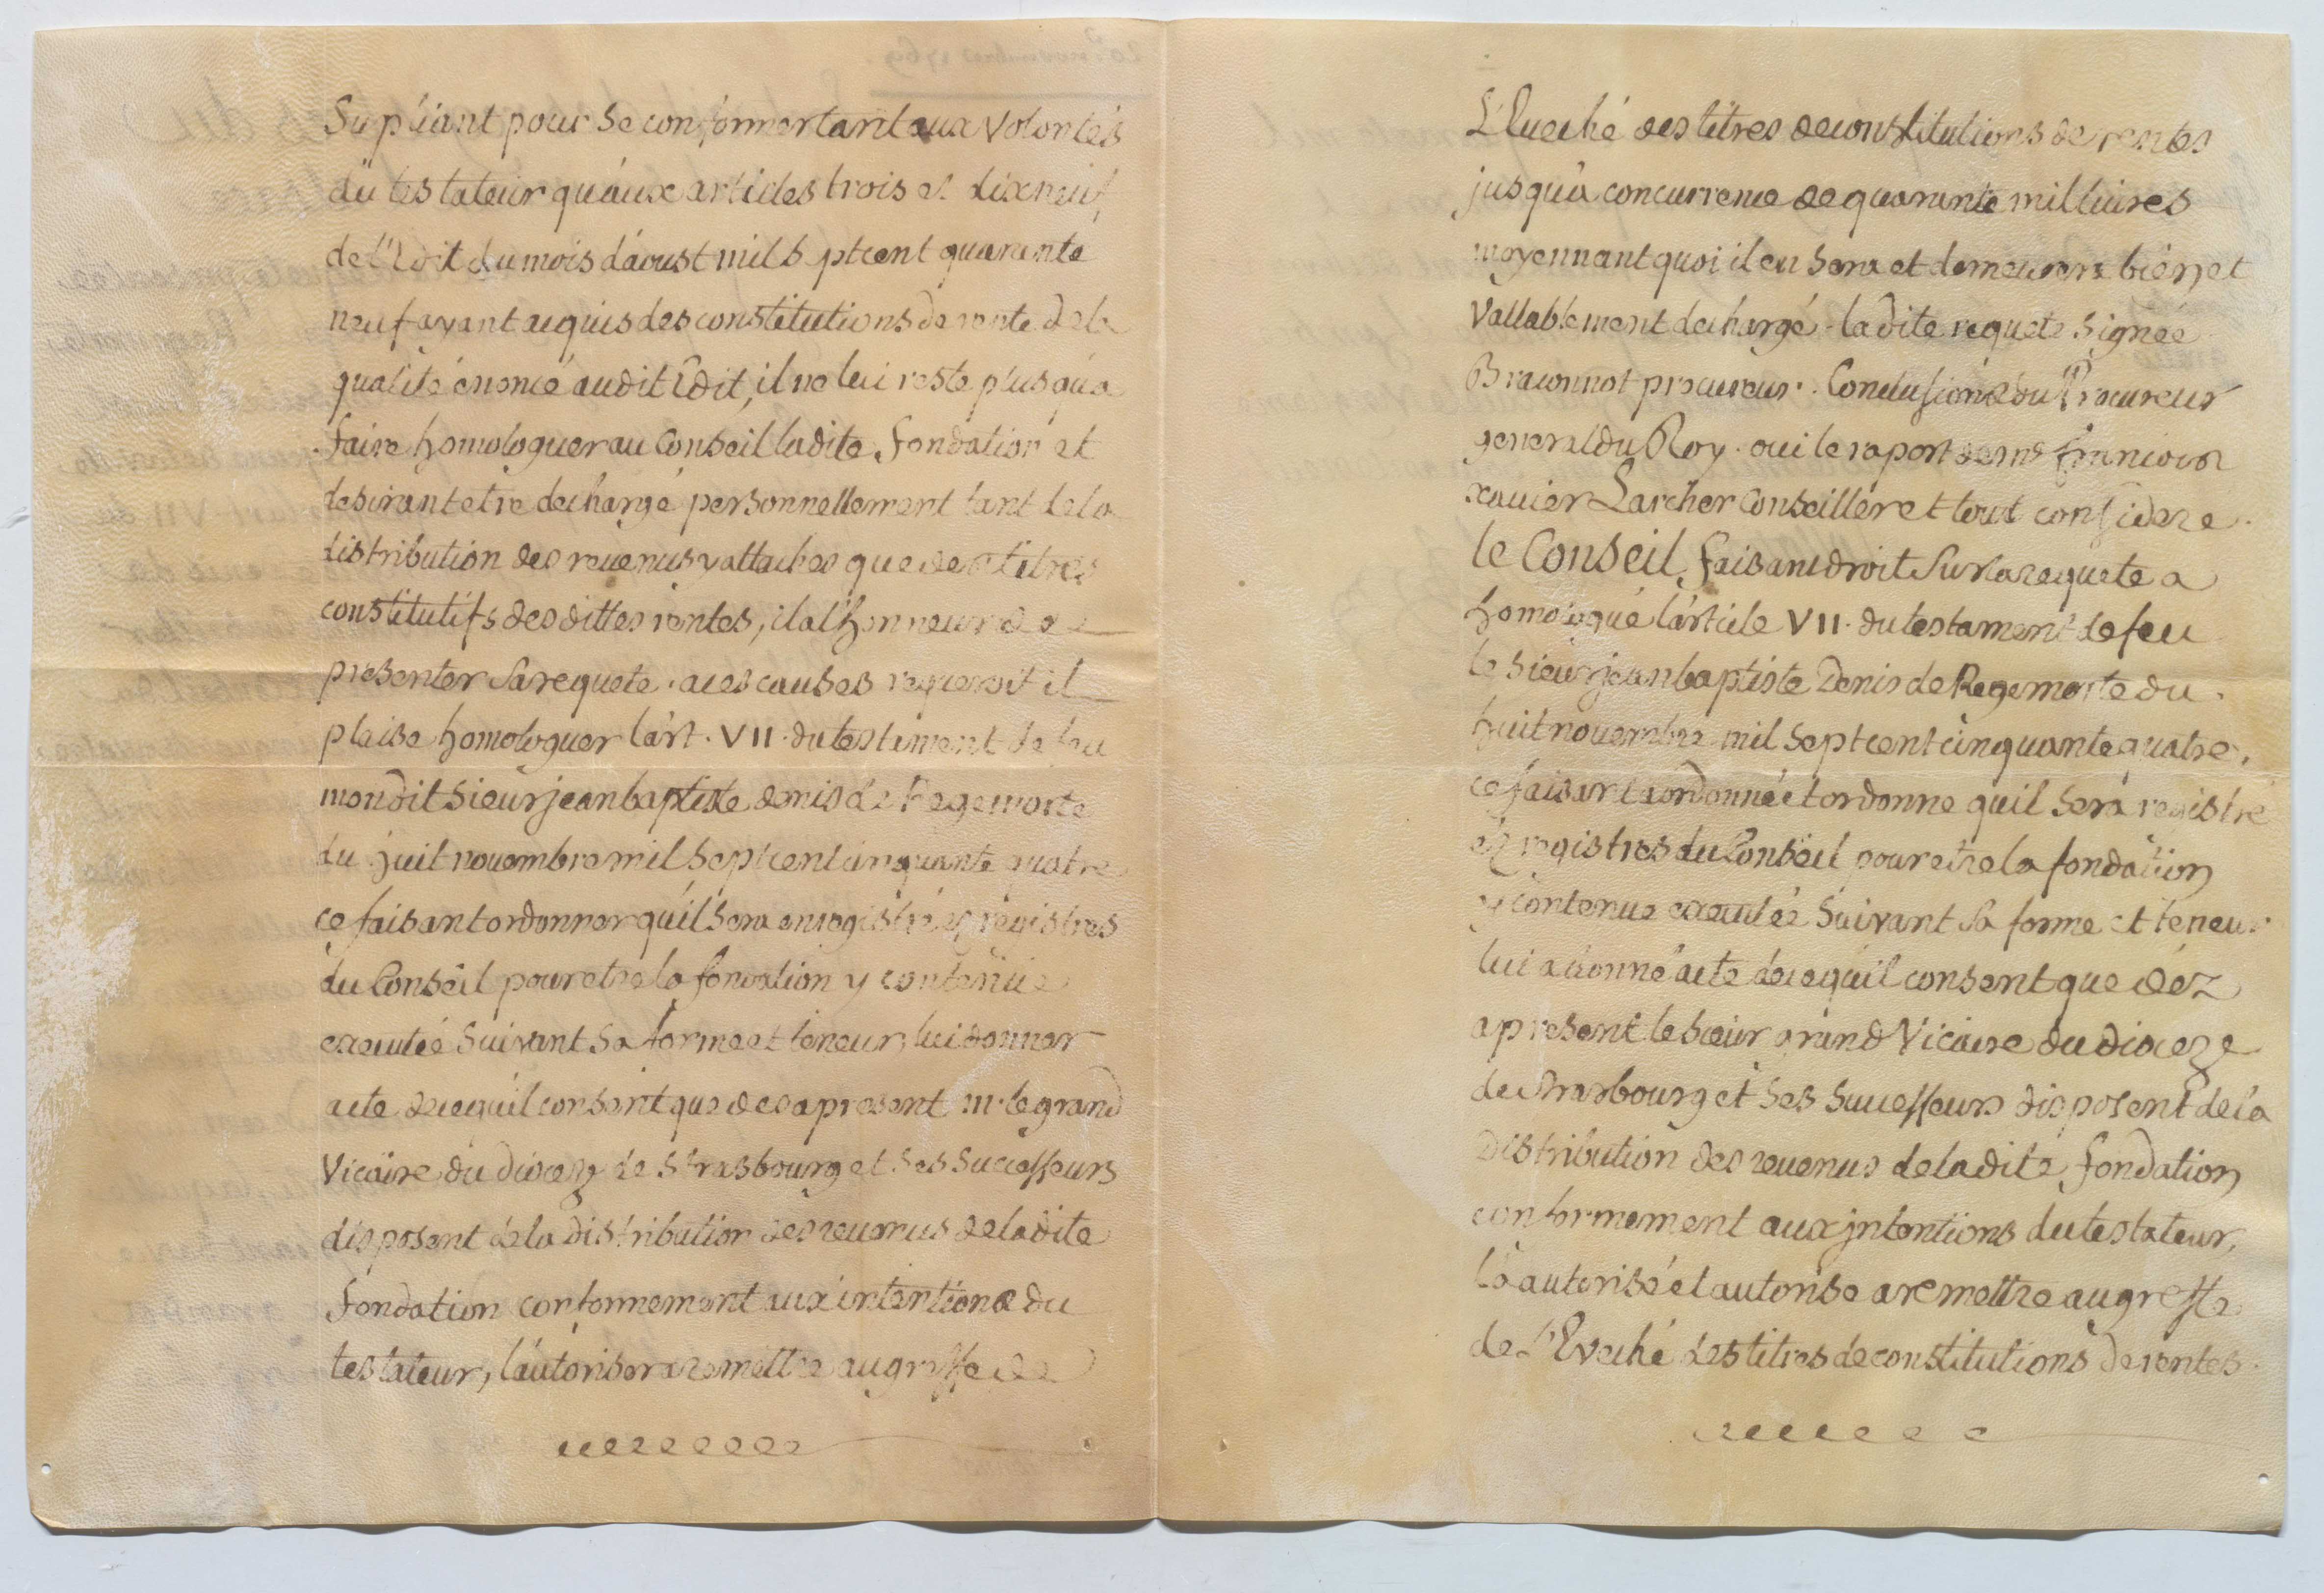 Supliant pour se conformer tant aux volontés
du testateur qu'aux articles trois et dixneuf
de l'Edit du mois d'aoust mil sept cent quarante
neuf ayant acquis des constitutions de rente de la
qualité énoncé audit Edit, il ne lui reste plus qu'a
faire homologuer au Conseil ladite fondation et
desirant etre dechargé personnellement tant de la
distribution des revenus y attachés que des titres
constitutifs des dittes rentes, il a l'honneur de
presenter sa requete. a ces causes requeroit il
plaise homologuer l'art. VII. du testament de feu
mondit sieur jean baptiste denis de Regemorte
du huit novembre mil sept cent cinquante quatre
ce faisant ordonner qu'il sera enregistré ez registres
du Conseil pour etre la fondation y contenüe
executée suivant sa forme et teneur, lui donner
acte de ce qu'il consent que des a present m. le grand
Vicaire du diocez de Strasbourg et ses successeurs
disposent de la distribution des revenus de ladite
fondation conformement aux intentions du
testateur, l'autoriser a remettre au greffe de
L'Eveché des titres de constitutions de rentes
jusqu'a concurrence de quarante mil livres
moyennant quoi il en sera et demeurera bien et
Vallablement dechargé. ladite requete signée
Braconnot procureur. Conclusions du Procureur
general du Roy. oui le raport de me François
xavier Larcher Conseiller et tout consideré.
le Conseil faisant droit sur la requete a
homologué l'article VII. du testament de feu
le sieur jean baptiste Denis de Regemorte du
huit novembre mil sept cent cinquante quatre,
ce faisant a ordonné et ordonne qu'il sera registré
ez registres du Conseil pour etre la fondation
y contenue executée suivant sa forme et teneur
lui a donné acte de ce qu'il consent que déz
a present le sieur grand Vicaire du dioceze
de Strasbourg et ses successeurs disposent de la
distribution des revenus de ladite fondation
conformement aux jntentions du testateur,
l'a autorisé et autorise a remettre au greffe
de L'Eveché des titres de constitutions de rentes